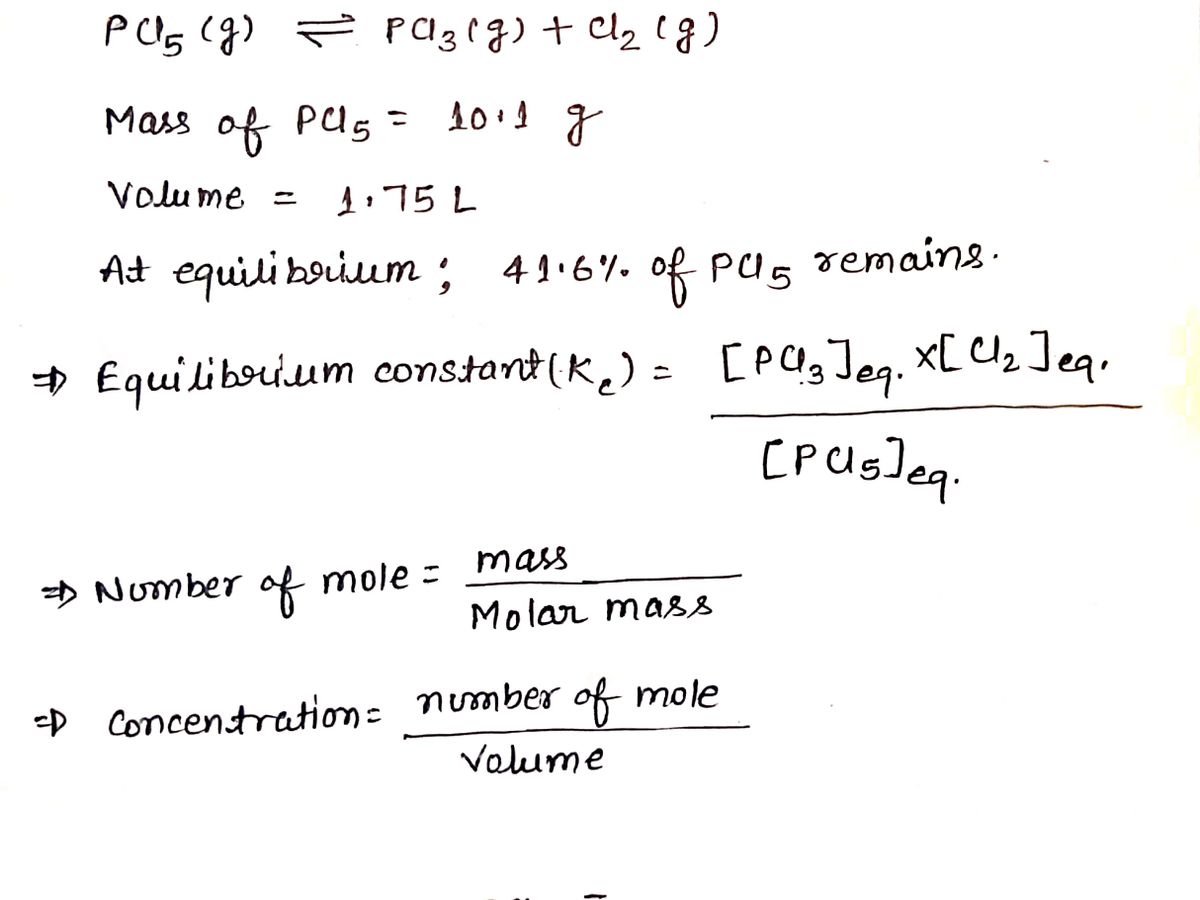 PCl5 (g) ⇌ PCl3 (g) + Cl2 (g)
Mass of PCl5 = 10.1 g
Volume = 1.75 L
At equilibrium ; 41.6% of PCl5 remains.
⇒ Equilibrium constant (Kc) = [PCl3]eq. x [Cl2]eq.
[PCl5]eq.
⇒ Number of mole = mass
Molar mass
⇒ Concentration = number of mole
Volume